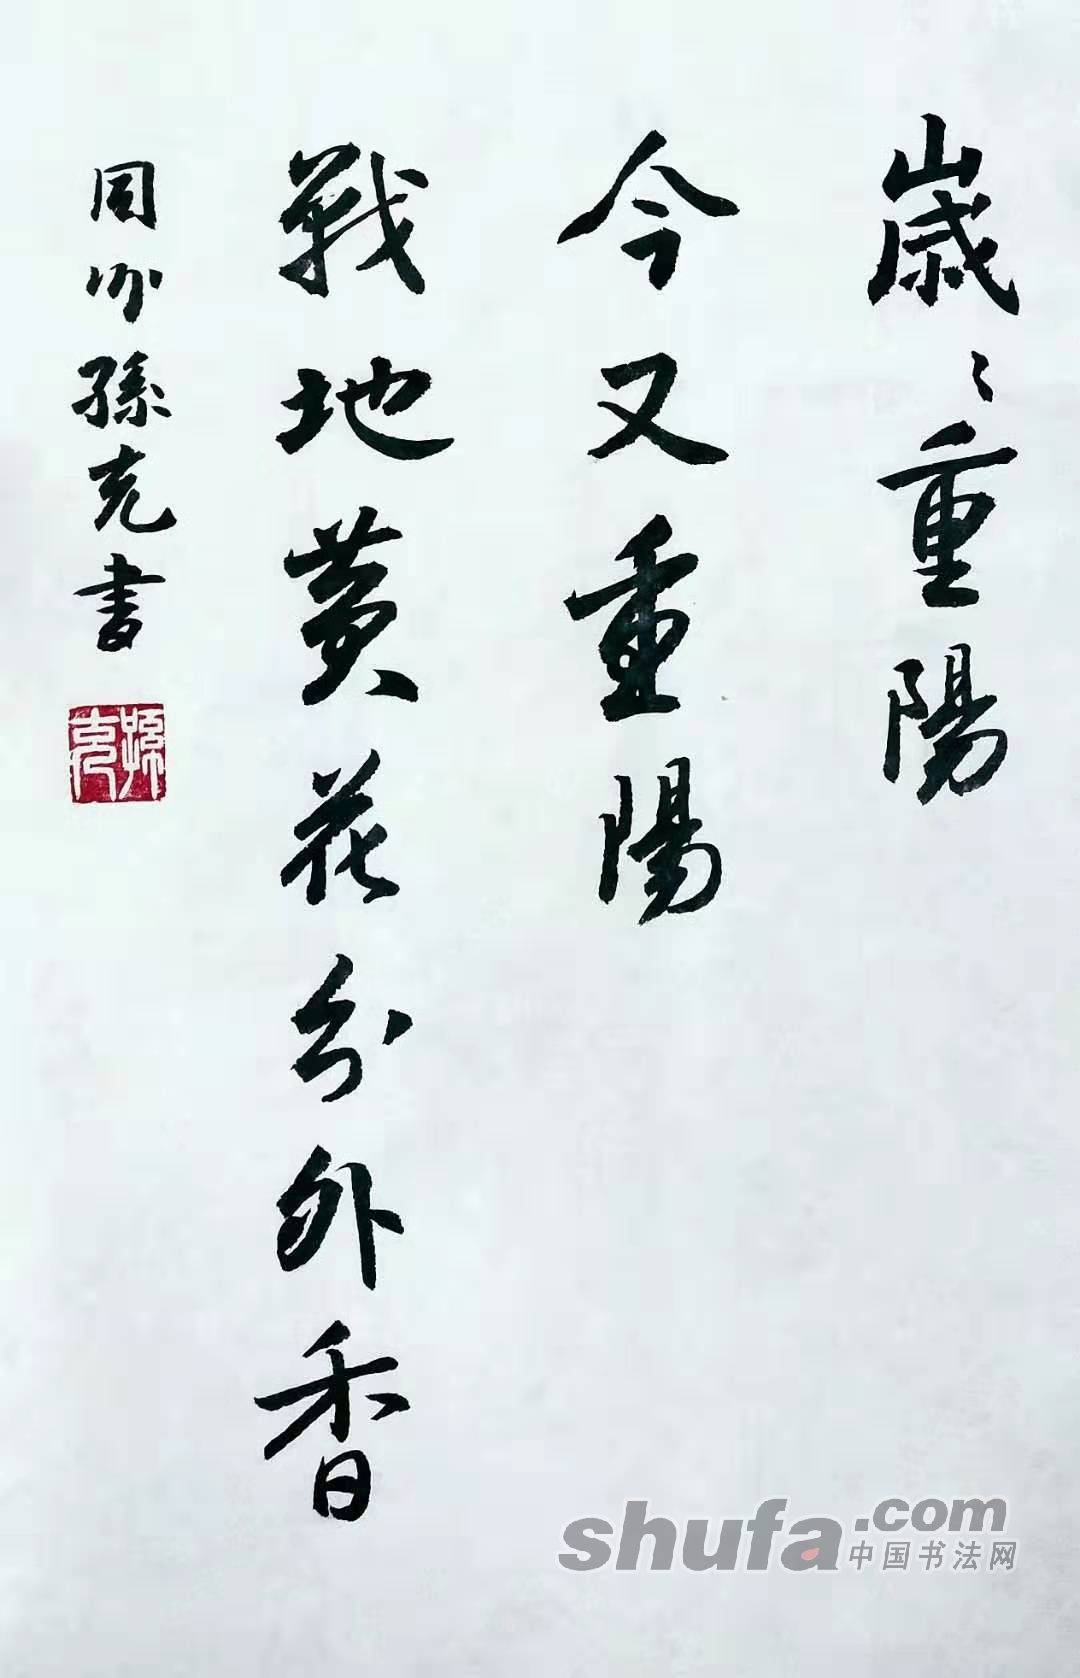 歲〻重陽
今又重陽
戰地黃花分外香
同州孫克書
孫克
shufa.com
中国书法网